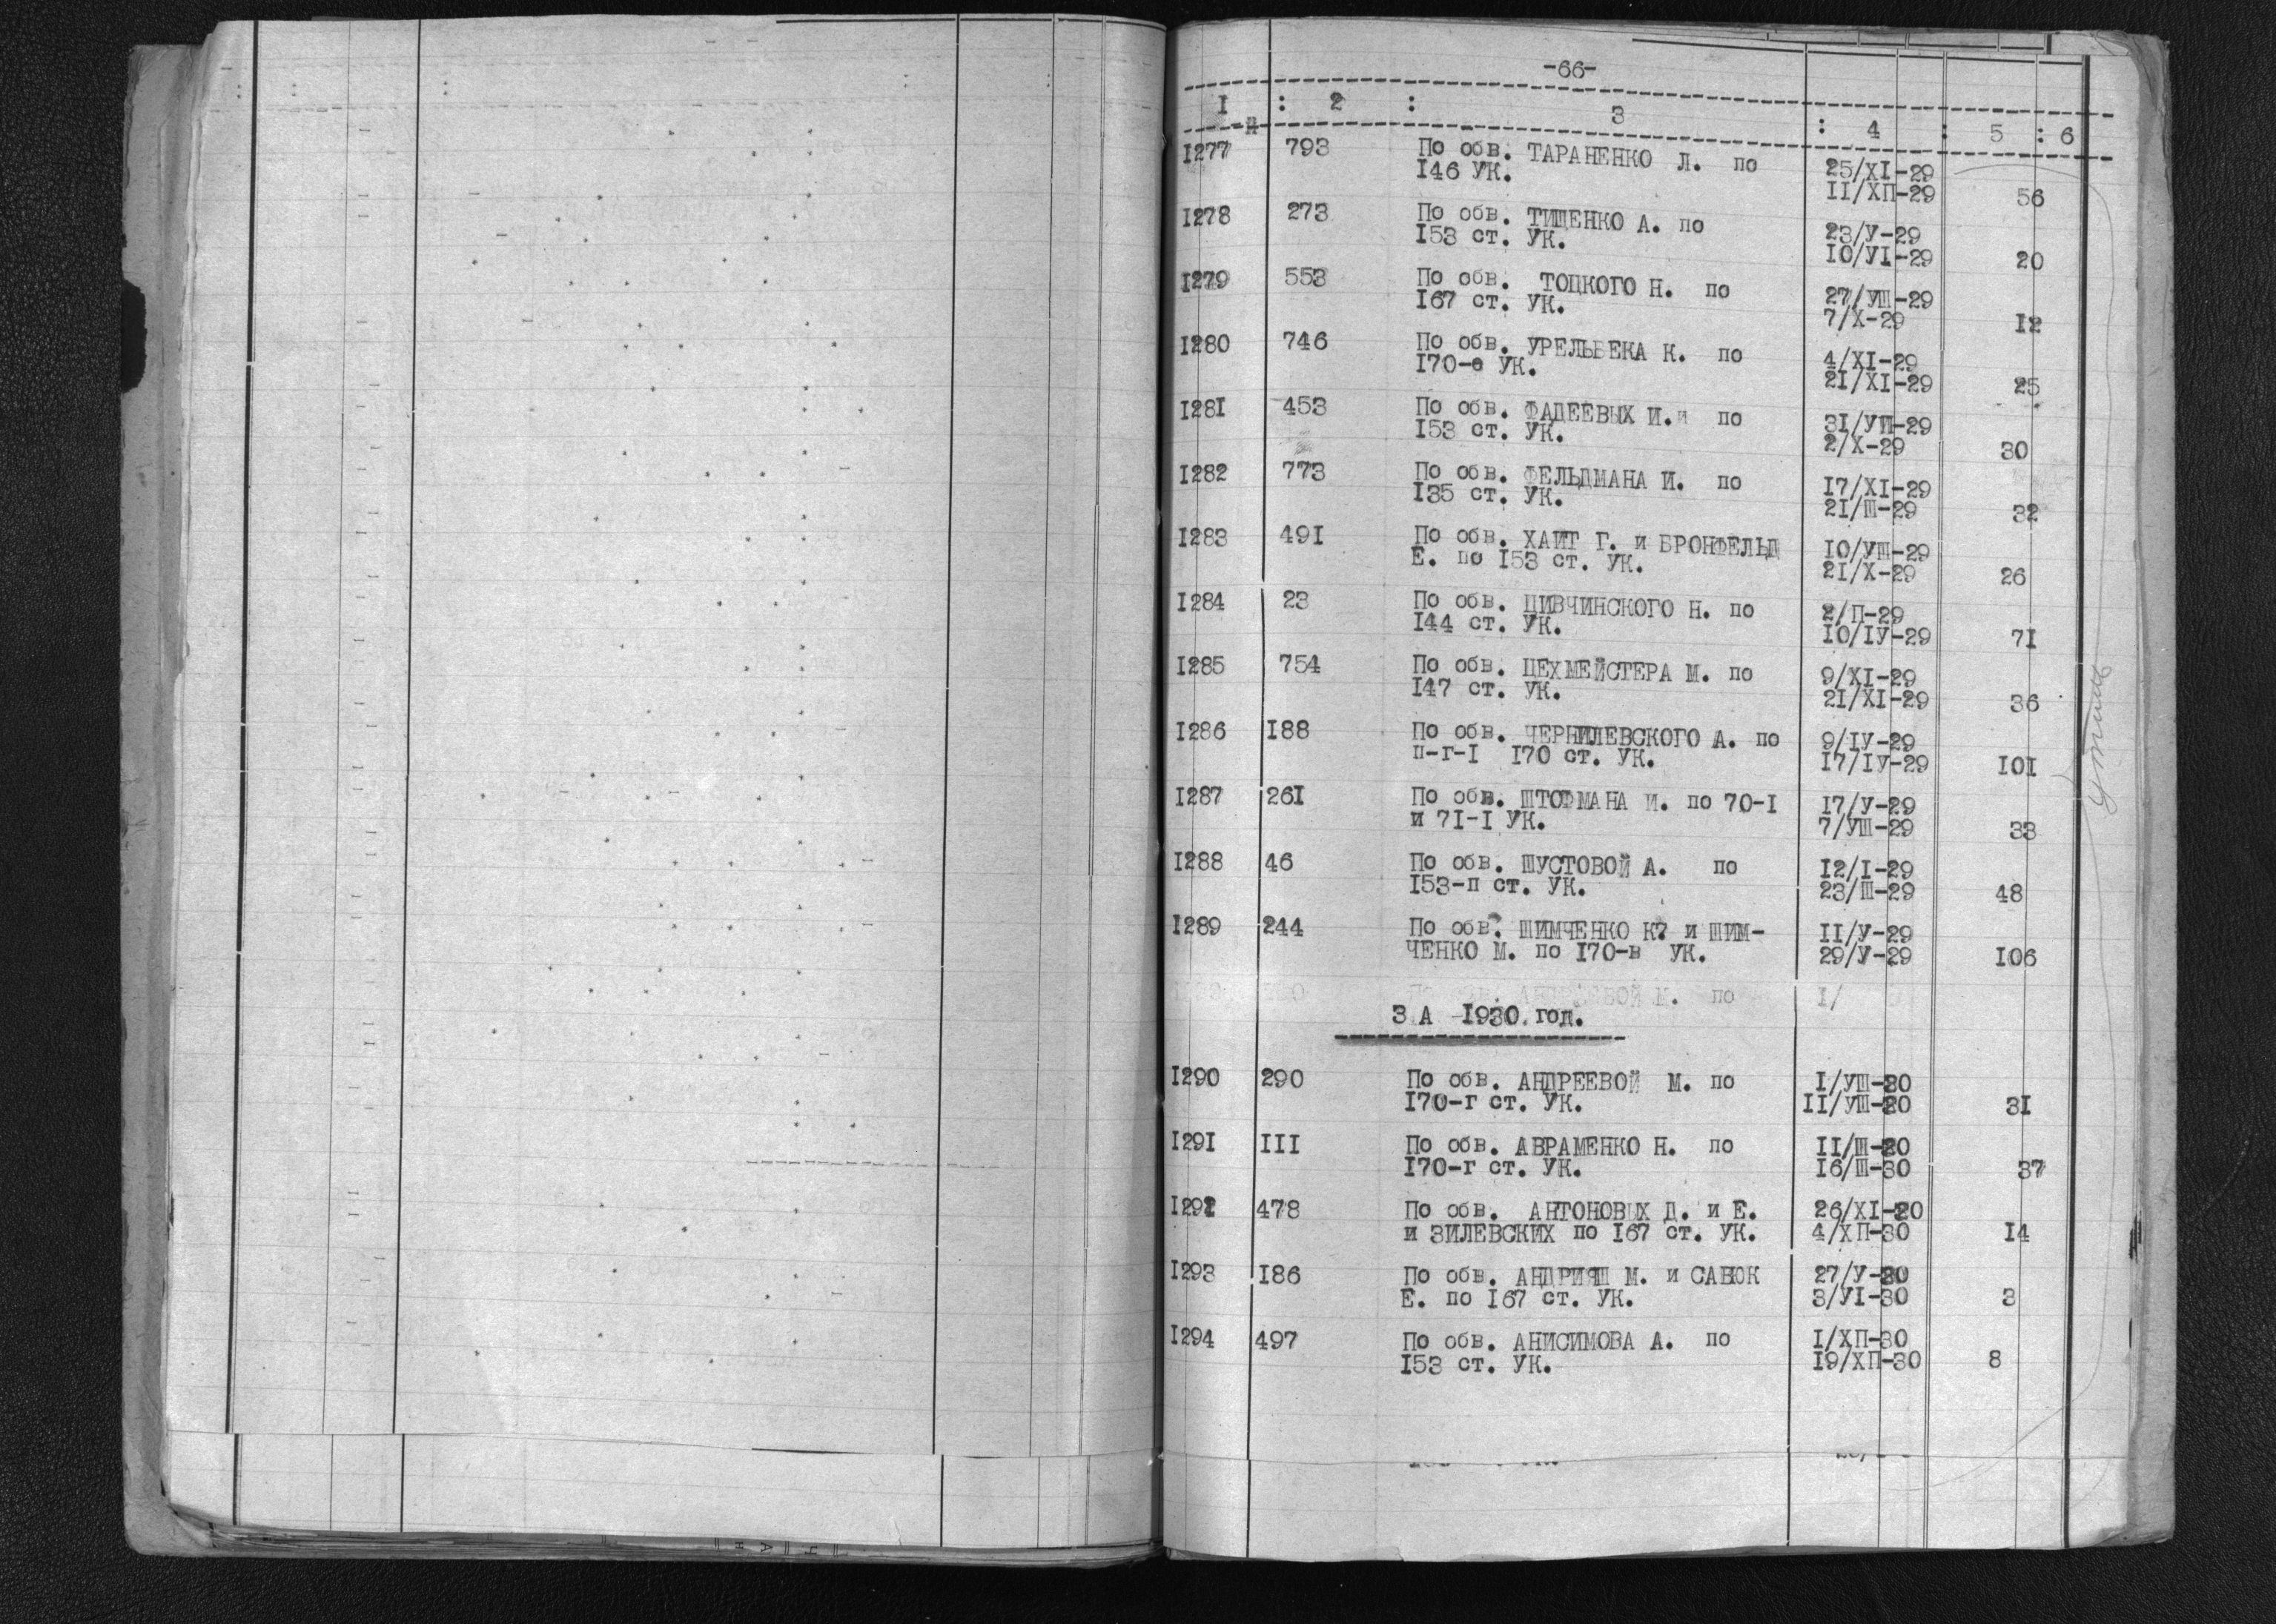 -66-
I : 2 : 3 : 4 : 5 : 6
I277 793 По обв. ТАРАНЕНКО Л. по 25/XI-29
I46 УК. II/ХП-29 56
I278 273 По обв. ТИЩЕНКО А. по 23/У-29
I53 ст. УК. I0/УI-29 20
I279 553 По обв. ТОЦКОГО Н. по 27/УШ-29
I67 ст. УК. 7/Х-29 I2
I280 746 По обв. УРЕЛЬБЕКА К. по 4/XI-29
I70-е УК. 2I/XI-29 25
I28I 453 По обв. ФАДЕЕВЫХ И.и по 3I/УП-29
I53 ст. УК. 2/Х-29 30
I282 773 По обв. ФЕЛЬДМАНА И. по I7/XI-29
I35 ст. УК. 2I/Ш-29 32
I283 49I По обв. ХАИТ Г. и БРОНФЕЛЬД I0/УШ-29
Е. по I53 ст. УК. 2I/Х-29 26
I284 23 По обв. ЦИВЧИНСКОГО Н. по 2/П-29
I44 ст. УК. I0/IУ-29 7I
I285 754 По обв. ЦЕХМЕЙСТЕРА М. по 9/XI-29
I47 ст. УК. 2I/XI-29 36
I286 I88 По обв. ЧЕРНИЛЕВСКОГО А. по 9/IУ-29
п-г-I I70 ст. УК. I7/IУ-29 I0I
I287 26I По обв. ШТОФМАНА И. по 70-I I7/У-29
и 7I-I УК. 7/УШ-29 33
I288 46 По обв. ШУСТОВОЙ А. по I2/I-29
I53-п ст. УК. 23/Ш-29 48
I289 244 По обв. ШИМЧЕНКО К? и ШИМ- II/У-29
ЧЕНКО М. по I70-в УК. 29/У-29 I06
З А I930 год.
I290 290 По обв. АНДРЕЕВОЙ М. по I/УШ-30
I70-г ст. УК. II/УШ-30 3I
I29I III По обв. АВРАМЕНКО Н. по II/Ш-30
I70-г ст. УК. I6/Ш-30 37
I292 478 По обв. АНТОНОВЫХ Д. и Е. 26/XI-30
и ЗИЛЕВСКИХ по I67 ст. УК. 4/ХП-30 I4
I293 I86 По обв. АНДРИЯШ М. и САВЮК 27/У-30
Е. по I67 ст. УК. 3/УI-30 3
I294 497 По обв. АНИСИМОВА А. по I/ХП-30
I53 ст. УК. I9/ХП-30 8